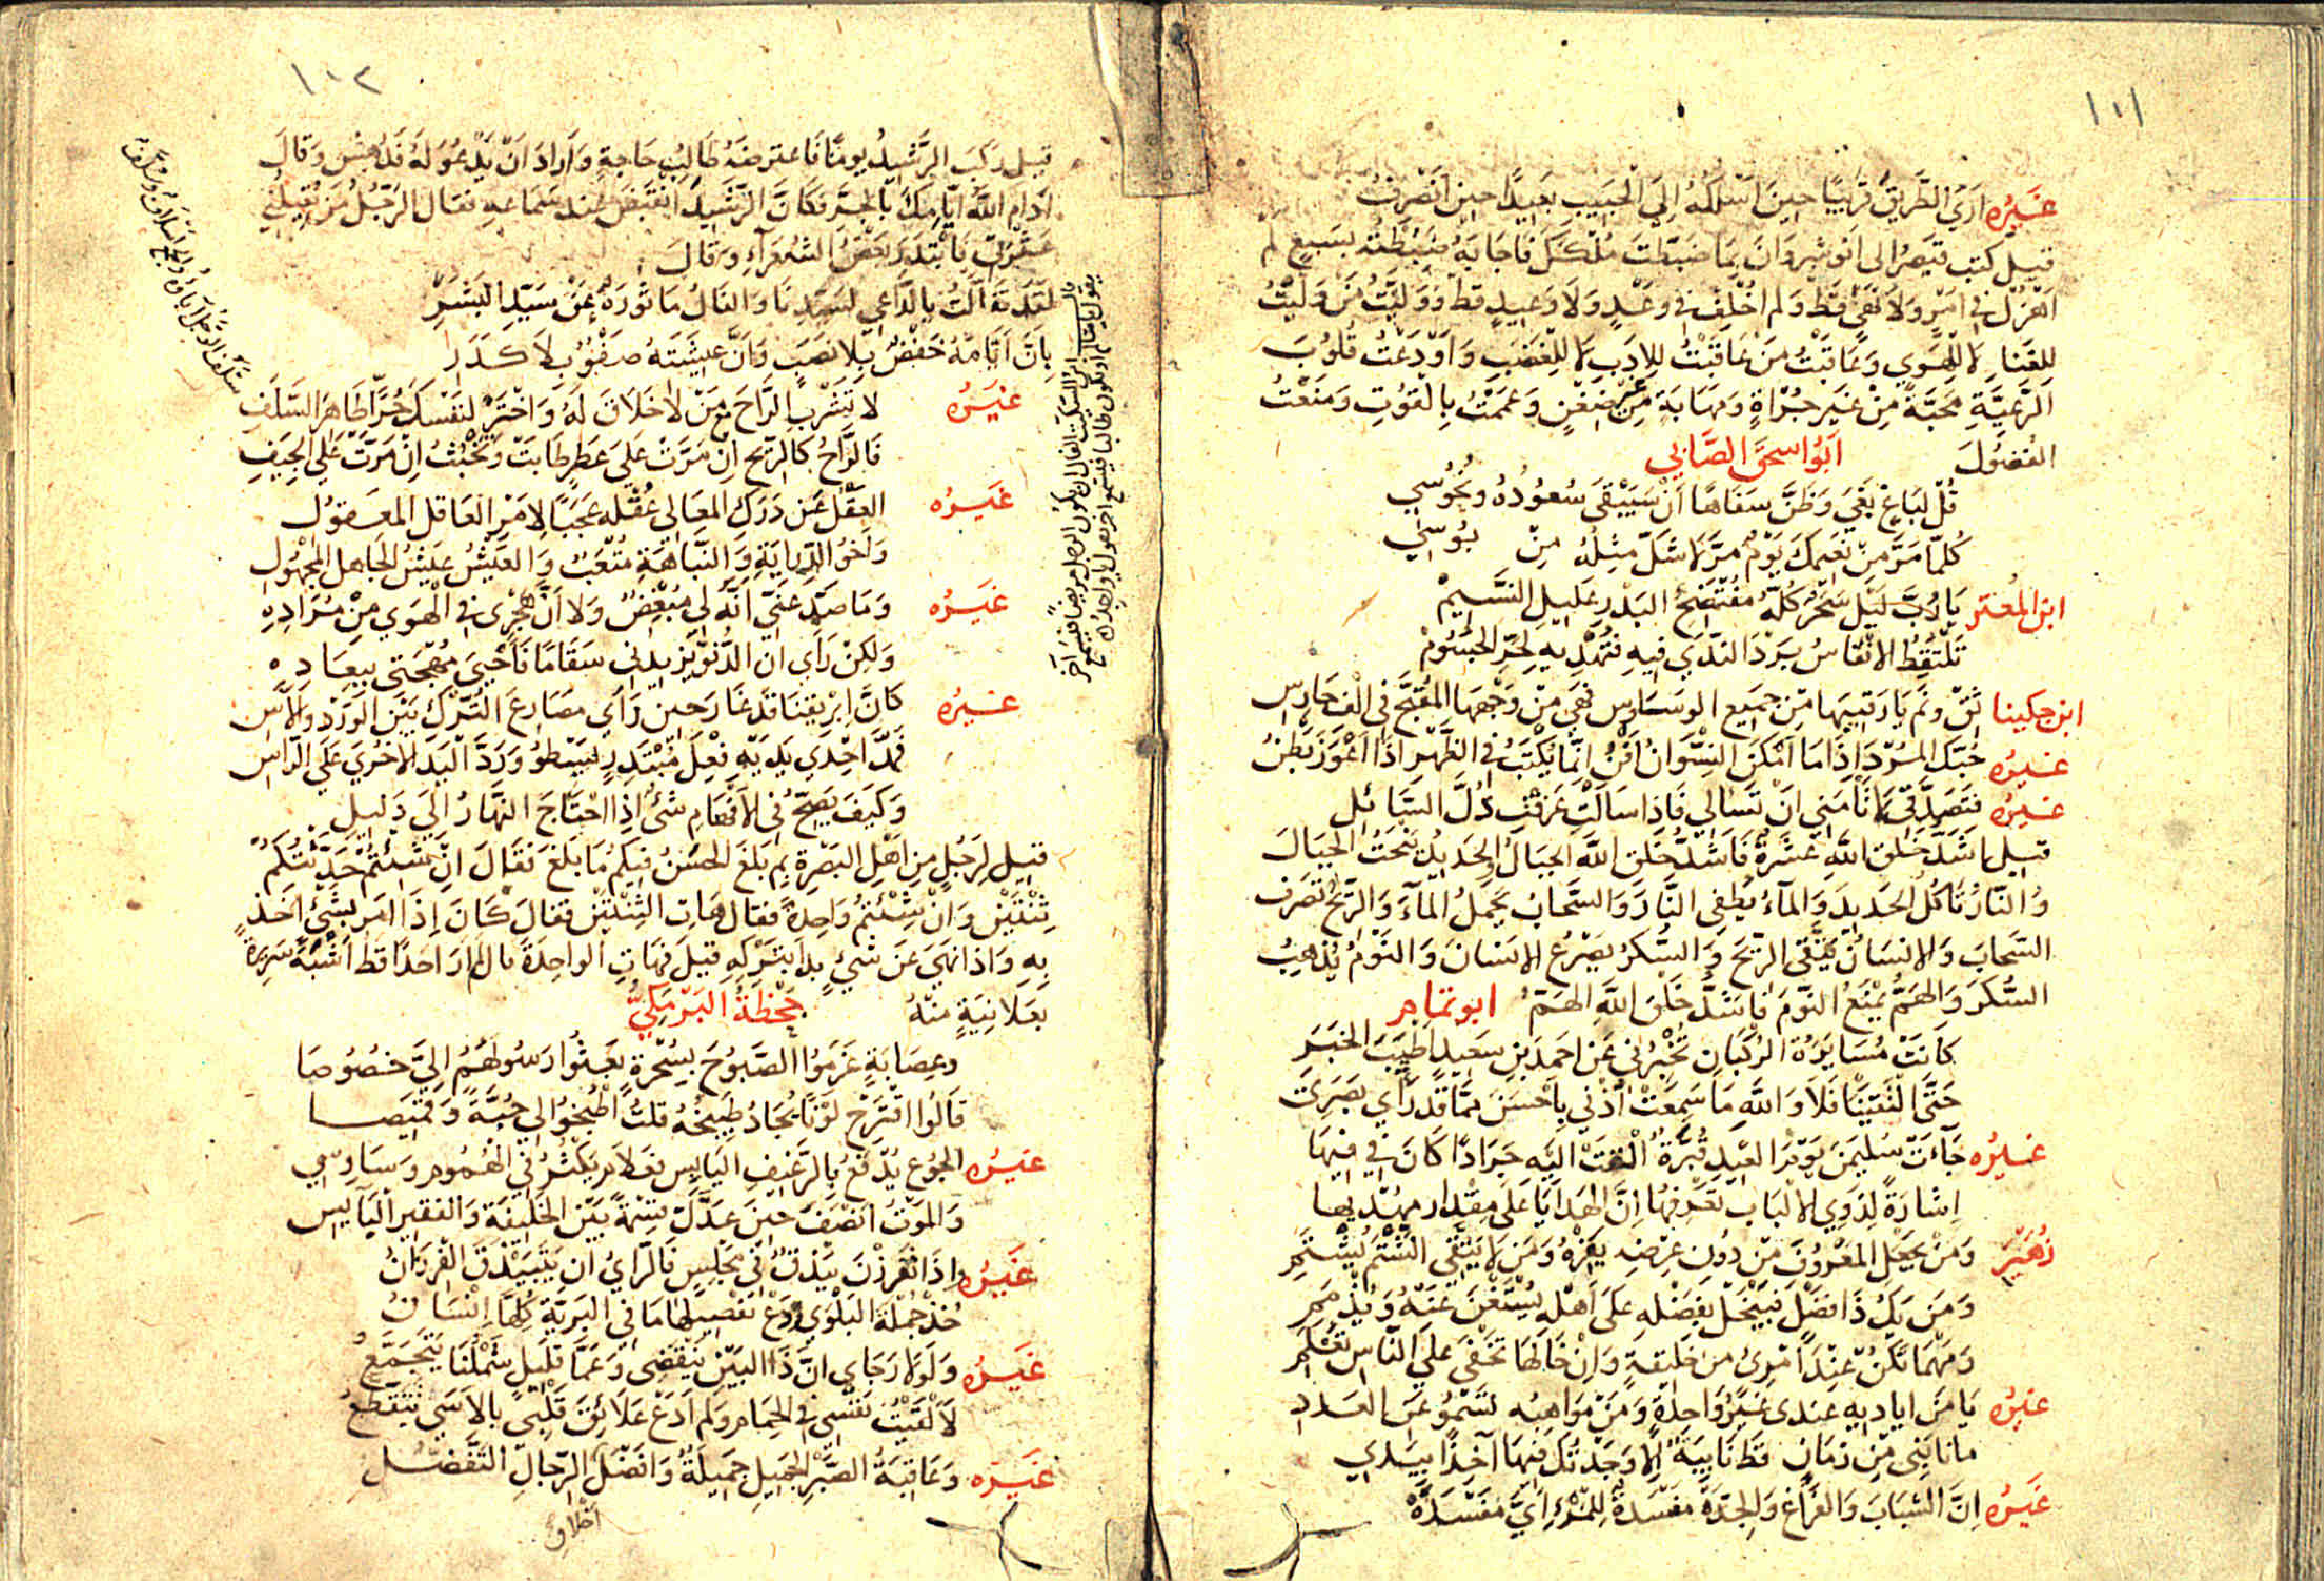 ١١١
غيره ارى الطريق قريبًا حين اسلكه الى الحبيب بعيدًا حين انصرف
قيل كتب قيصر الى انوشروان بما ضبطت ملكك فاجابه ضبطته بسبع لم
اهزل في امر ولا نهي قط ولم اخلف في وعد ولا وعيد قط ووليت من وليت
للغنا لا للهوى وعاقبت من عاقبت للادب لا للغضب واودعت قلوب
الرعية محبة من غير جراة ومهابة من غير ضغن وعممت بالقوت ومنعت
الفضول ابو اسحق الصابي
قل لباغ بغى وظن سفاها ان سيبقى سعوده ونحوسي
كلما مر من نعيمك يوم مر لا شك مثله من بوسي
ابن المعتز يا رب ليل سحر كله مفتضح البدر عليل النسيم
تلتقط الانفاس برد الندى فيه فتهديه لحر الجسوم
ابن حكينا ثق ونم يا رقيبها من جميع الوساوس فهي من وجهها المقبح في الف حارس
غيره حبك المرد اذا ما امكن النسوان افن انما يكتب في الظهر اذا اعوز بطن
غيره فتصدقي لا تامني ان تسالي فاذا سالت عرفت ذل السائل
قيل اشد خلق الله عشرة فاشد خلق الله الجبال الحديد ينحت الجبال
والنار تاكل الحديد والماء يطفي النار والسحاب يحمل الماء والريح تصرف
السحاب والانسان يتقي الريح والسكر يصرع الانسان والنوم يذهب
السكر والهم يمنع النوم فاشد خلق الله الهم ابو تمام
كانت مسايرة الركبان تخبرني عن احمد بن سعيد اطيب الخبر
حتى التقينا فلا والله ما سمعت اذني باحسن مما قد راى بصرى
غيره جاءت سليمن يوم العيد قبرة القت اليه جرادًا كان في فيها
اشارة لذوي الالباب تعرفها ان الهدايا على مقدار مهديها
زهير ومن يجعل المعروف من دون عرضه يفره ومن لا يتقي الشتم يشتم
ومن يك ذا فضل فيبخل بفضله على اهله يستغن عنه ويذمم
ومهما تكن عند امرئ من خليقة وان خالها تخفى على الناس تعلم
غيره يا من اياديه عندى غير واحدة ومن مواهبه تسمو عن العدد
ما نابني من زمان قط نايبة الا وجدتك فيها آخذًا بيدي
غيره ان الشباب والفراغ والجدة مفسدة للمرء اي مفسدة
١١٢
قيل ركب الرشيد يومًا فاعترضه طالب حاجة واراد ان يدعو له فدهش وقال
ادام الله ايامك بالجر فكان الرشيد انقبض عند سماعه فقال الرجل من يقيلني
عثرتي فابتدر بعض الشعراء وقال
لقد تفالت بالداعي لسيدنا والفال ماثورة عن سيد البشر
بان ايامه خفض بلا نصب وان عيشته صفو بلا كدر
غيره لا تشرب الراح مع من لا خلاق له واختر لنفسك حرًا طاهر السلف
فالراح كالريح ان مرت على عطر طابت وتخبث ان مرت على الجيف
غيره العقل عن درك المعالي عقله عجبًا لامر العاقل المعقول
واخو الدراية والنباهة متعب والعيش عيش الجاهل المجهول
غيره وما صد عني انه لي مبغض ولا ان هجرى في الهوى من مراده
ولكن راى ان الدنو يزيدني سقامًا فاحيى مهجتي ببعاده
غيره كان ابريقنا قد غار حين راى مصارع الترك بين الورد والآس
فمد احدى يديه فعل مبتدر ليسطو ورد اليد الاخرى على الراس
وكيف يصح في الافهام شئ اذا احتاج النهار الى دليل
قيل لرجل من اهل البصرة بم بلغ الحسن فيكم ما بلغ فقال ان شئتم حدثتكم
ثنتين وان شئتم واحدة فقال هات الثنتين فقال كان اذا امر بشئ اخذ
به واذا نهى عن شيء بدا بتركه قيل فهات الواحدة قال لم ار احدًا قط اشبه سريرة
بعلانية منه جحظة البرمكي
وعصابة عزموا الصبوح بسحرة بعثوا رسولهم الي خصوصا
قالوا اقترح لونًا نجاد طبيخه قلت اطبخوا لي جبة وقميصا
غيره الجوع يدفع بالرغيف اليابس فعلام يكثر في الهموم وساوسي
والموت انصف حين عدل قسمة بين الخليفة والفقير اليايس
غيره واذا تفرزن بيذق في مجلس فالراى ان يتبيذق الفرزان
خذ جملة البلوى ودع تفصيلها ما في البرية كلها انسان
غيره ولولا رجاي ان ذا البين ينقضى وعما قليل شملنا يتجمع
لالقيت نفسي في الحمام ولم ادع علايق قلبي بالاسى تتقطع
غيره وعاقبة الصبر الجميل جميلة وافضل اخلاق الرجال التفضل